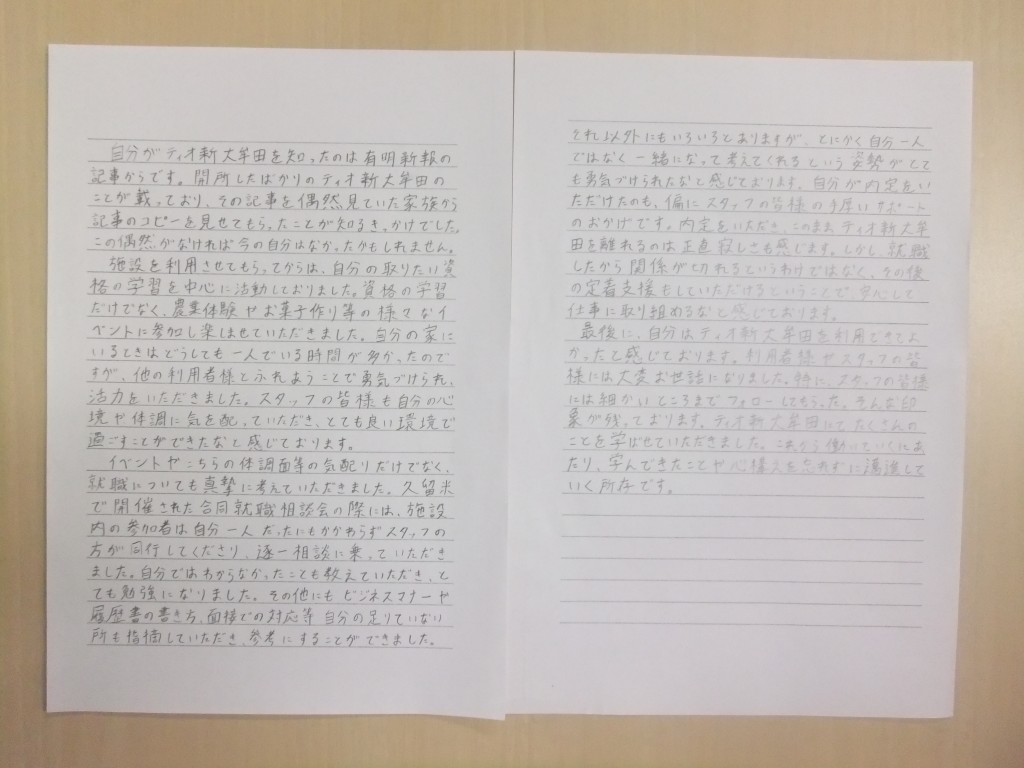 自分がティオ新大牟田を知ったのは有明新報の
記事からです。開所したばかりのティオ新大牟田の
ことが載っており、その記事を偶然見ていた家族から
記事のコピーを見せてもらったことが知るきっかけでした。
この偶然がなければ今の自分はなかったかもしれません。
施設を利用させてもらってからは、自分の取りたい資
格の学習を中心に活動しておりました。資格の学習
だけでなく、農業体験やお菓子作り等の様々なイ
ベントに参加し楽しませていただきました。自分の家に
いるときはどうしても一人でいる時間が多かったので
すが、他の利用者様とふれあうことで勇気づけられ、
活力をいただきました。スタッフの皆様も自分の心
境や体調に気を配っていただき、とても良い環境で
過ごすことができたなと感じております。
イベントやこちらの体調面等の気配りだけでなく、
就職についても真摯に考えていただきました。久留米
で開催された合同就職相談会の際には、施設
内の参加者は自分一人だったにもかかわらずスタッフの
方が同行してくださり、逐一相談に乗っていただき
ました。自分ではわからなかったことも教えていただき、と
ても勉強になりました。その他にもビジネスマナーや
履歴書の書き方、面接での対応等自分の足りていない
所も指摘していただき、参考にすることができました。
それ以外にもいろいろとありますが、とにかく自分一人
ではなく一緒になって考えてくれるという姿勢がとて
も勇気づけられたなと感じております。自分が内定をい
ただけたのも、偏にスタッフの皆様の手厚いサポート
のおかげです。内定をいただき、このままティオ新大牟
田を離れるのは正直寂しさも感じます。しかし、就職
したから関係が切れるというわけではなく、その後
の定着支援もしていただけるということで、安心して
仕事に取り組めるなと感じております。
最後に、自分はティオ新大牟田を利用できてよ
かったと感じております。利用者様やスタッフの皆
様には大変お世話になりました。特に、スタッフの皆様
には細かいところまでフォローしてもらった。そんな印
象が残っております。ティオ新大牟田にてたくさんの
ことを学ばせていただきました。これから働いていくにあ
たり、学んできたことや心構えを忘れずに邁進して
いく所存です。